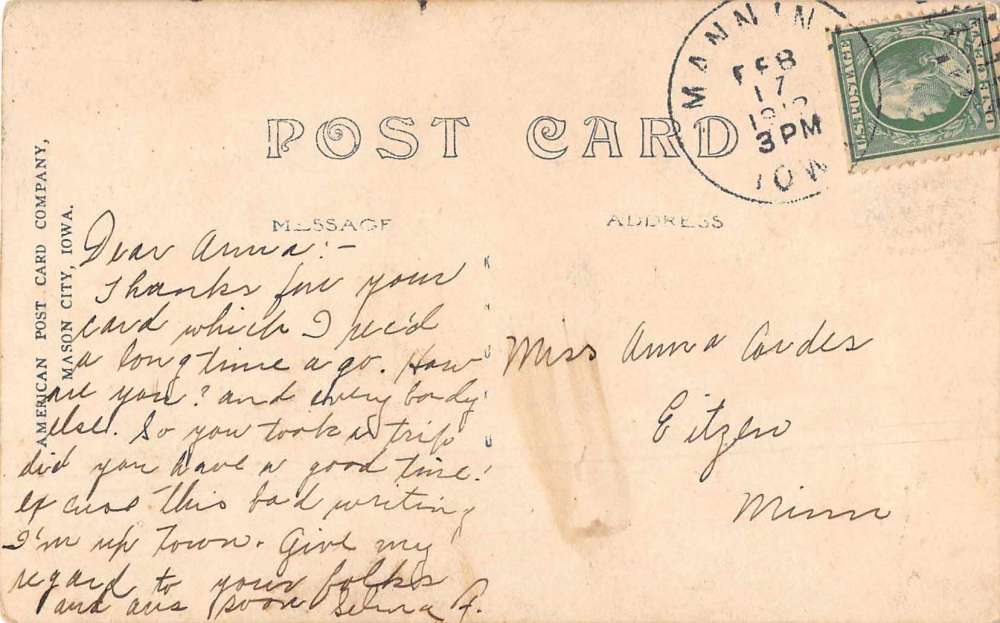 AMERICAN POST CARD COMPANY,
MASON CITY, IOWA.
POST CARD
MANNIN
FEB
17
3 PM
IOW
U.S. POSTAGE
MESSAGE
ADDRESS
Dear Anna:-
Thanks for your
card which I rec'd
a long time ago. How
are you? and every body
else. So you took a trip
did you have a good time?
excuse this bad writing
I'm up town. Give my
regard to your folks
and ans soon Selma A.
Miss Anna Cordes
Eitzen
Minn